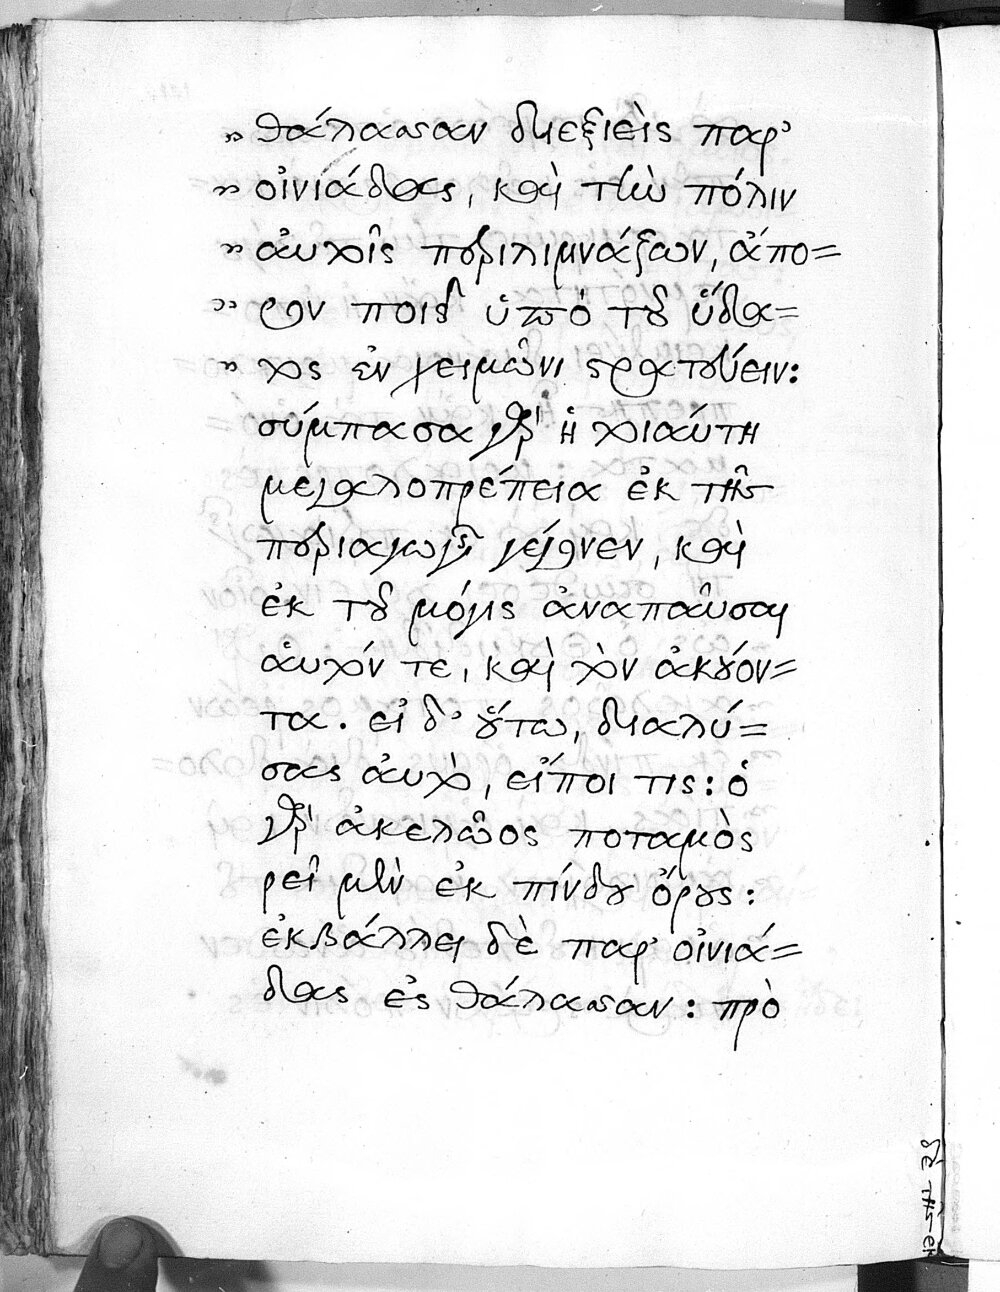 » θάλασσαν διεξιεὶς παρ'
» οἰνιάδας, καὶ τὴν πόλιν
» αὐτοῖς περιλιμνάζων, ἄπο=
» ρον ποιεῖ ὑπὸ τοῦ ὕδα=
» τος ἐν χειμῶνι στρατεύειν:
σύμπασα γὰρ ἡ τοιαύτη
μεγαλοπρέπεια ἐκ τῆς
περιαγωγῆς γέγονεν, καὶ
ἐκ τοῦ μόγις ἀναπαῦσαι
αὐτόν τε, καὶ τὸν ἀκούον=
τα. εἰ δ' οὕτω, διαλύ=
σας αὐτὸ, εἴποι τις: ὁ
γὰρ ἀκελῶος ποταμὸς
ρεῖ μὲν ἐκ πίνδου ὄρους:
ἐκβάλλει δὲ παρ' οἰνιά=
δας ἐς θάλασσαν: πρὸ
δὲ τῆς ἐκ